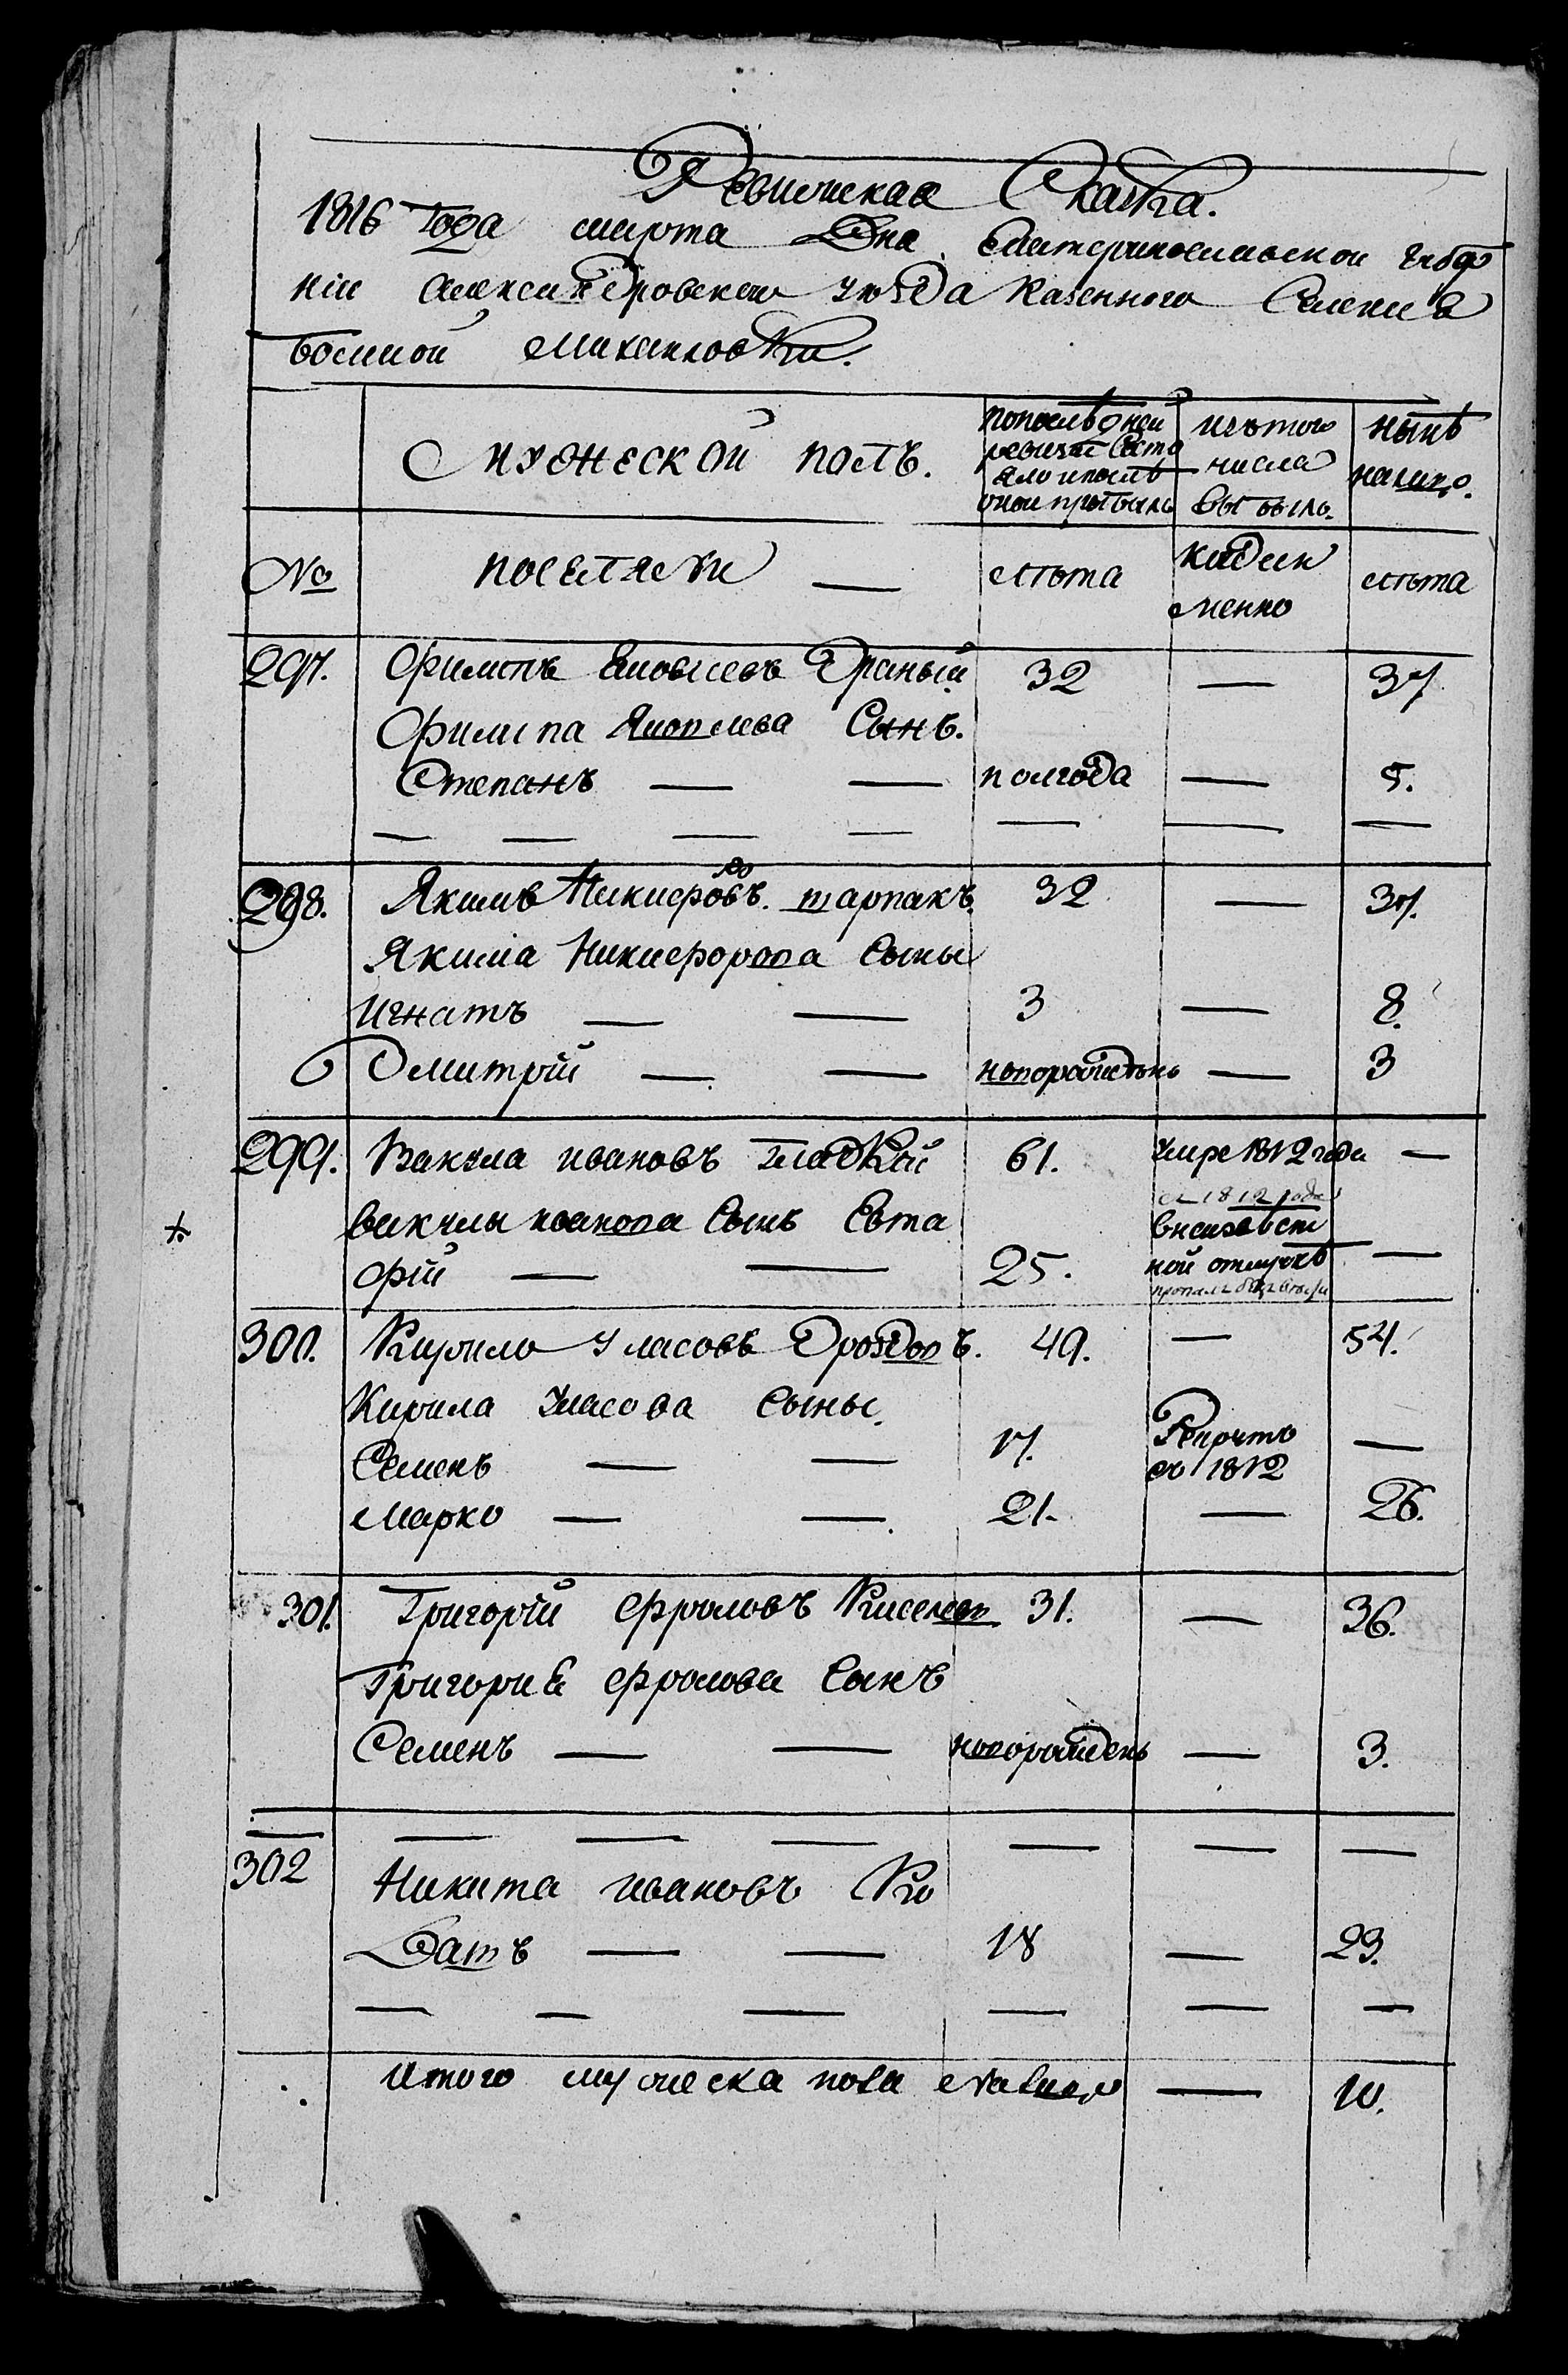 Ревижская Сказка.
1816 Года марта Дня Екатеринославской губер
ніи Александровского уезда казенного Селения
большой Михайловки.
Мужеской полъ.
по последней
ревизіи Состо
яло и после
оной прибыло
изъ того
числа
выбыло.
ныне
налицо.
№ поселяне — лѣта
когда имен
менно
лѣта
297. Филипъ Яковлевъ Драный 32 — 37
Филипа Яковлева Сынъ.
Степанъ — — полгода — 5.
298. Якимъ Никифоровъ. шарпакъ. 32 — 37.
Якима Никифорова Сыны
Игнатъ — — 3 — 8.
Дмитрій — — новорожденъ — 3
299. Вакула Ивановъ Гладкій 61. Умре 1812 года —
Вакулы Иванова Сынъ Евта
фій — — 25.
съ 1812 года
в неизвест
ной отлучке —
300. Кирило Уласовъ Дроздовъ. 49. — 54.
Кирила Уласова Сыны
Семенъ — — 17. Рекрутъ
съ 1812 —
Марко — — 21. — 26.
301. Григорій Фроловъ Киселевъ 31. — 36.
Григорія Фролова Сынъ
Семенъ — — новорожденъ — 3.
302 Никита Ивановъ Ко
батъ — — 18 — 23.
Итого мужеска пола налицо — 10.